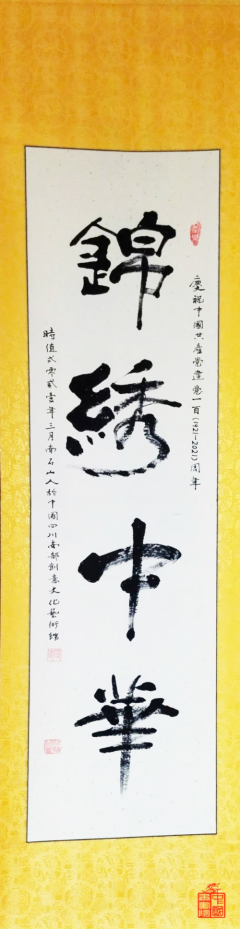 慶祝中國共產黨建黨一百(1921-2021)周年
錦綉中華
時值弍零貳壹年三月南石山人於中國四川南部創意文化藝術館